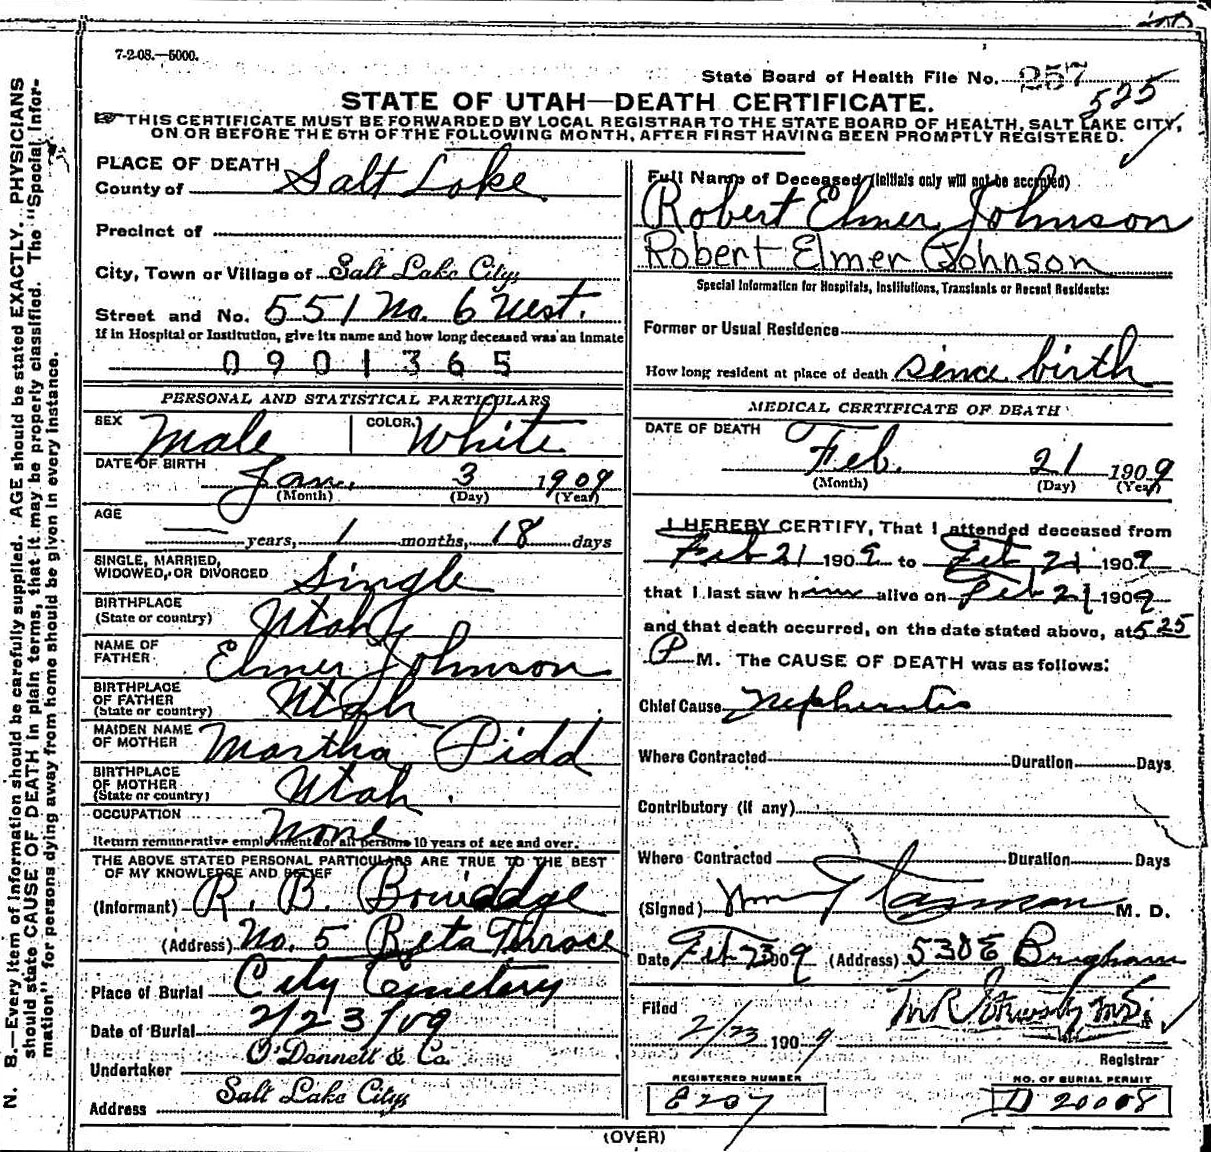 7-2-08.—5000.
State Board of Health File No. 257
525
STATE OF UTAH—DEATH CERTIFICATE.
THIS CERTIFICATE MUST BE FORWARDED BY LOCAL REGISTRAR TO THE STATE BOARD OF HEALTH, SALT LAKE CITY,
ON OR BEFORE THE 5TH OF THE FOLLOWING MONTH, AFTER FIRST HAVING BEEN PROMPTLY REGISTERED.
PLACE OF DEATH
County of Salt Lake
Precinct of
City, Town or Village of Salt Lake City,
Street and No. 551 No. 6 West.
If in Hospital or Institution, give its name and how long deceased was an inmate
0901365
PERSONAL AND STATISTICAL PARTICULARS
SEX Male COLOR White
DATE OF BIRTH Jan. 3 1909
(Month) (Day) (Year)
AGE
— years, 1 months, 18 days
SINGLE, MARRIED,
WIDOWED, OR DIVORCED Single
BIRTHPLACE
(State or country) Utah
NAME OF
FATHER Elmer Johnson
BIRTHPLACE
OF FATHER
(State or country) Utah
MAIDEN NAME
OF MOTHER Martha Pidd
BIRTHPLACE
OF MOTHER
(State or country) Utah.
OCCUPATION None
Return remunerative employment for all persons 10 years of age and over.
THE ABOVE STATED PERSONAL PARTICULARS ARE TRUE TO THE BEST
OF MY KNOWLEDGE AND BELIEF
(Informant) R. B.
(Address) No. 5
Place of Burial City Cemetery
Date of Burial 2/23/09
Undertaker O'Donnell & Co.
Address Salt Lake City,
Full Name of Deceased (initials only will not be accepted)
Robert Elmer Johnson
Robert Elmer Johnson
Special Information for Hospitals, Institutions, Transients or Recent Residents:
Former or Usual Residence
How long resident at place of death since birth
MEDICAL CERTIFICATE OF DEATH
DATE OF DEATH
Feb. 21 1909
(Month) (Day) (Year)
I HEREBY CERTIFY, That I attended deceased from
Feb 21 1909 to Feb 21 1909
that I last saw him alive on Feb 21 1909
and that death occurred, on the date stated above, at 5 25
P M. The CAUSE OF DEATH was as follows:
Chief Cause Nepheritis
Where Contracted Duration Days
Contributory (if any)
Where Contracted Duration Days
(Signed) M. D.
Date Feb 23 1909 (Address) 530 E Brigham
Filed
2/23 1909
Registrar
REGISTERED NUMBER
E 207
NO. OF BURIAL PERMIT
D 20008
(OVER)
N. B.—Every item of information should be carefully supplied. AGE should be stated EXACTLY. PHYSICIANS
should state CAUSE OF DEATH in plain terms, that it may be properly classified. The "Special Infor-
mation" for persons dying away from home should be given in every instance.